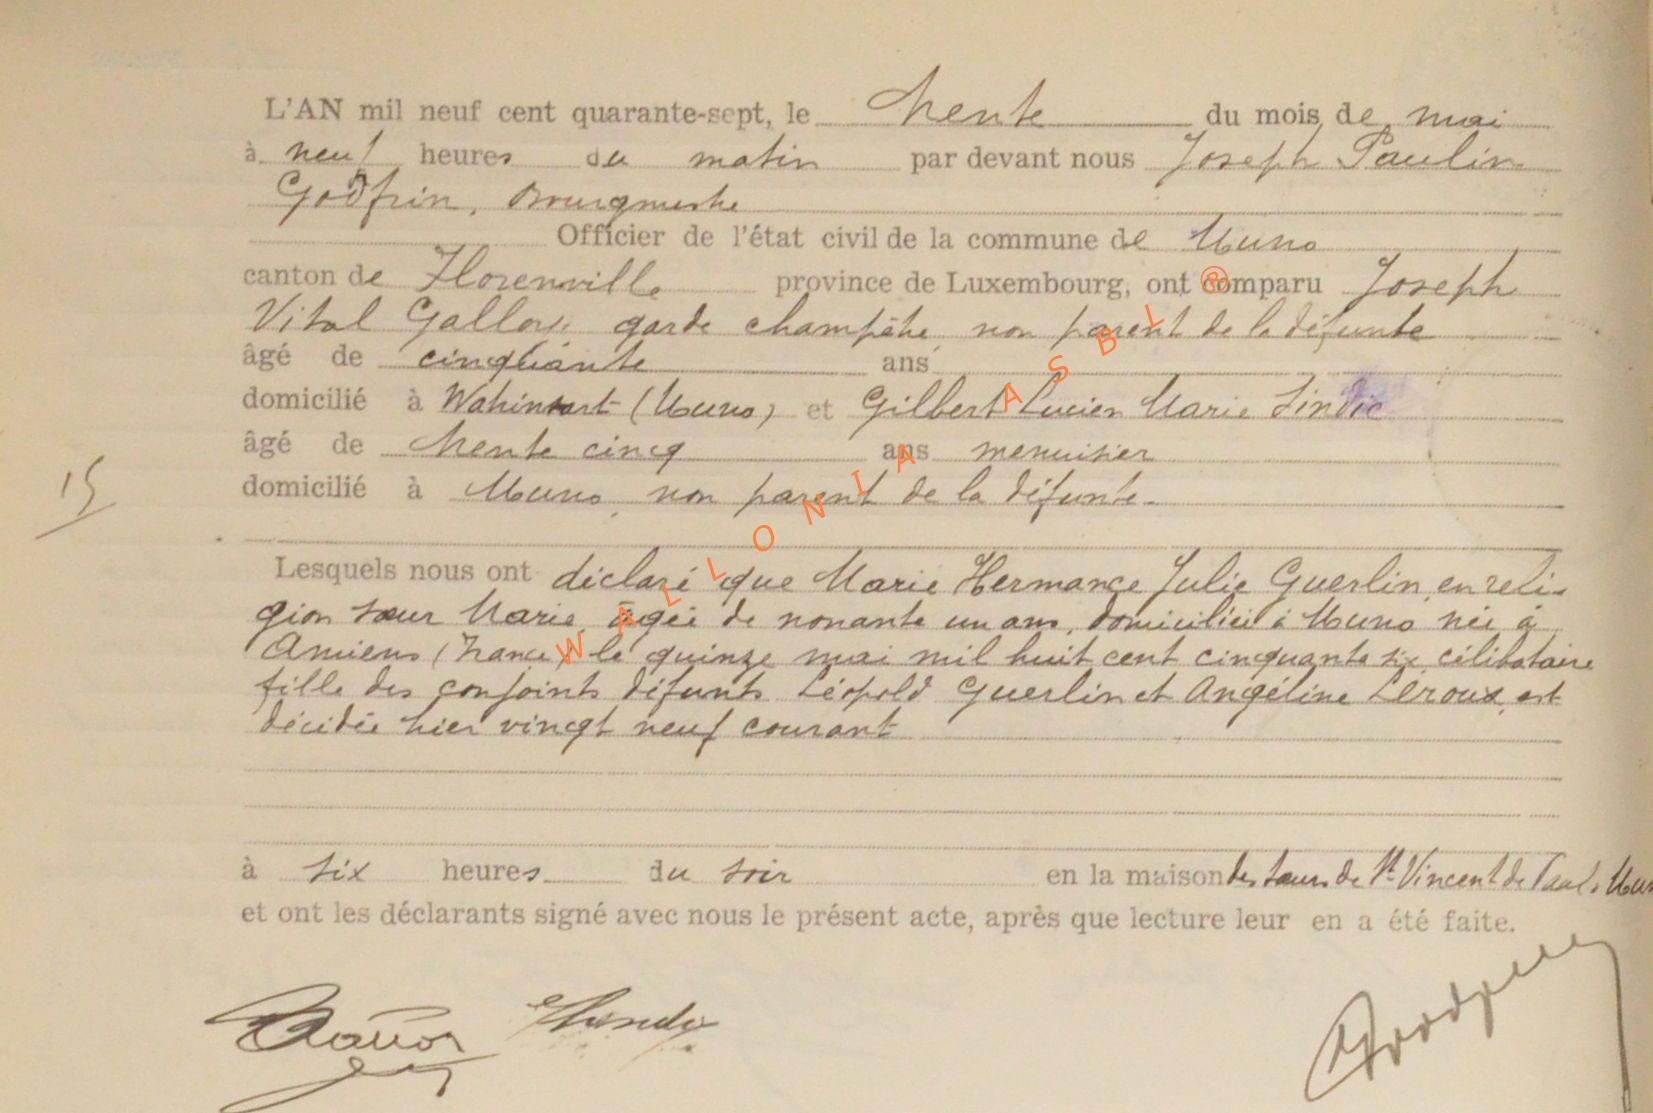 L'AN mil neuf cent quarante-sept, le trente du mois de mai
à neuf heures du matin par devant nous Joseph Paulin
Godfrin, Bourgmestre
Officier de l'état civil de la commune de Muno
canton de Florenville province de Luxembourg, ont comparu Joseph
Vital Galloy, garde champêtre, non parent de la défunte
âgé de cinquante ans
domicilié à (Muno) et Gilbert Lucien Marie Sindic
âgé de trente cinq ans menuisier
15
domicilié à Muno, non parent de la défunte.
Lesquels nous ont déclaré que Marie Hermance Julie Guerlin, en reli-
gion sœur Marie, âgée de nonante un ans, domiciliée à Muno née à
Amiens (France) le quinze mai mil huit cent cinquante six, célibataire
fille des conjoints défunts Léopold Guerlin et Angéline Leroux, est
décédée hier vingt neuf courant
à six heures du soir en la maison des sœurs de St Vincent de Paul à Mun
et ont les déclarants signé avec nous le présent acte, après que lecture leur en a été faite.
WALLONIA ASBL ®